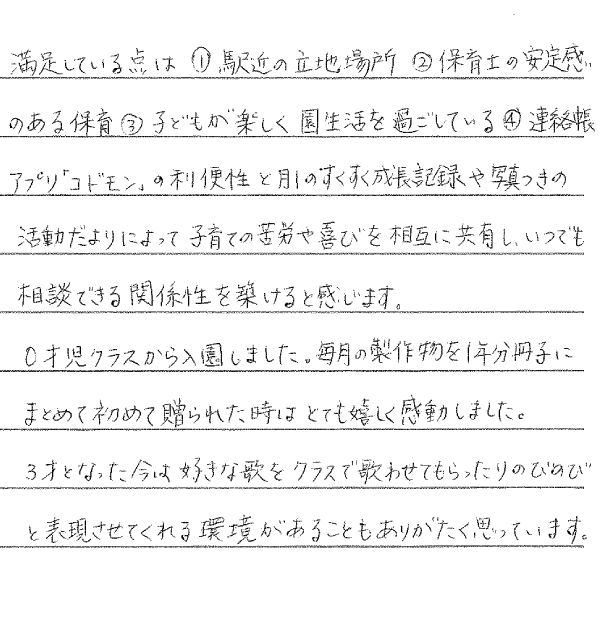 満足している点は ①駅近の立地場所 ②保育士の安定感
のある保育 ③子どもが楽しく園生活を過ごしている ④連絡帳
アプリ「コドモン」の利便性と月1のすくすく成長記録や写真つきの
活動だよりによって子育ての苦労や喜びを相互に共有し、いつでも
相談できる関係性を築けると感じます。
0才児クラスから入園しました。毎月の製作物を1年分冊子に
まとめて初めて贈られた時はとても嬉しく感動しました。
3才となった今は好きな歌をクラスで歌わせてもらったりのびのび
と表現させてくれる環境があることもありがたく思っています。